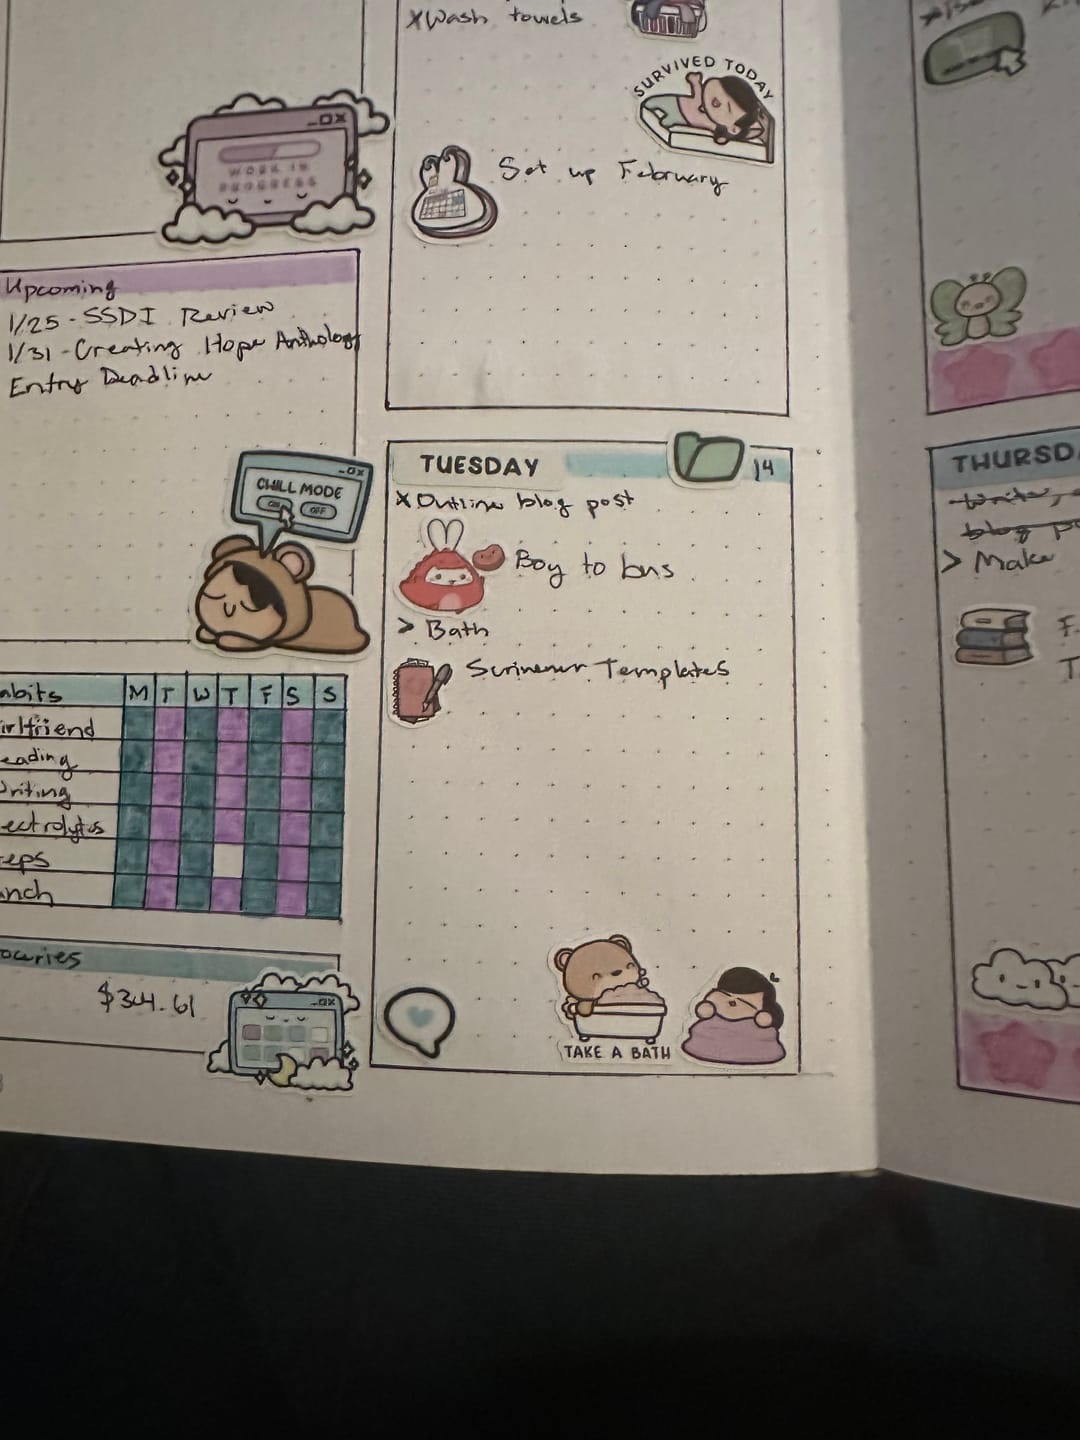 WORK IN
PROGRESS
Upcoming
1/25 - SSDI Review
1/31 - Creating Hope Anthology
Entry Deadline
CHILL MODE
ON OFF
abits M T W T F S S
irlfriend
eading
riting
ectrolytes
eps
nch
oceries
$304.61
X Wash towels
SURVIVED TODAY
Set up February
TUESDAY 14
X Outline blog post
Boy to bus
> Bath
Scrivener Templates
TAKE A BATH
THURSD
blog po
> Make